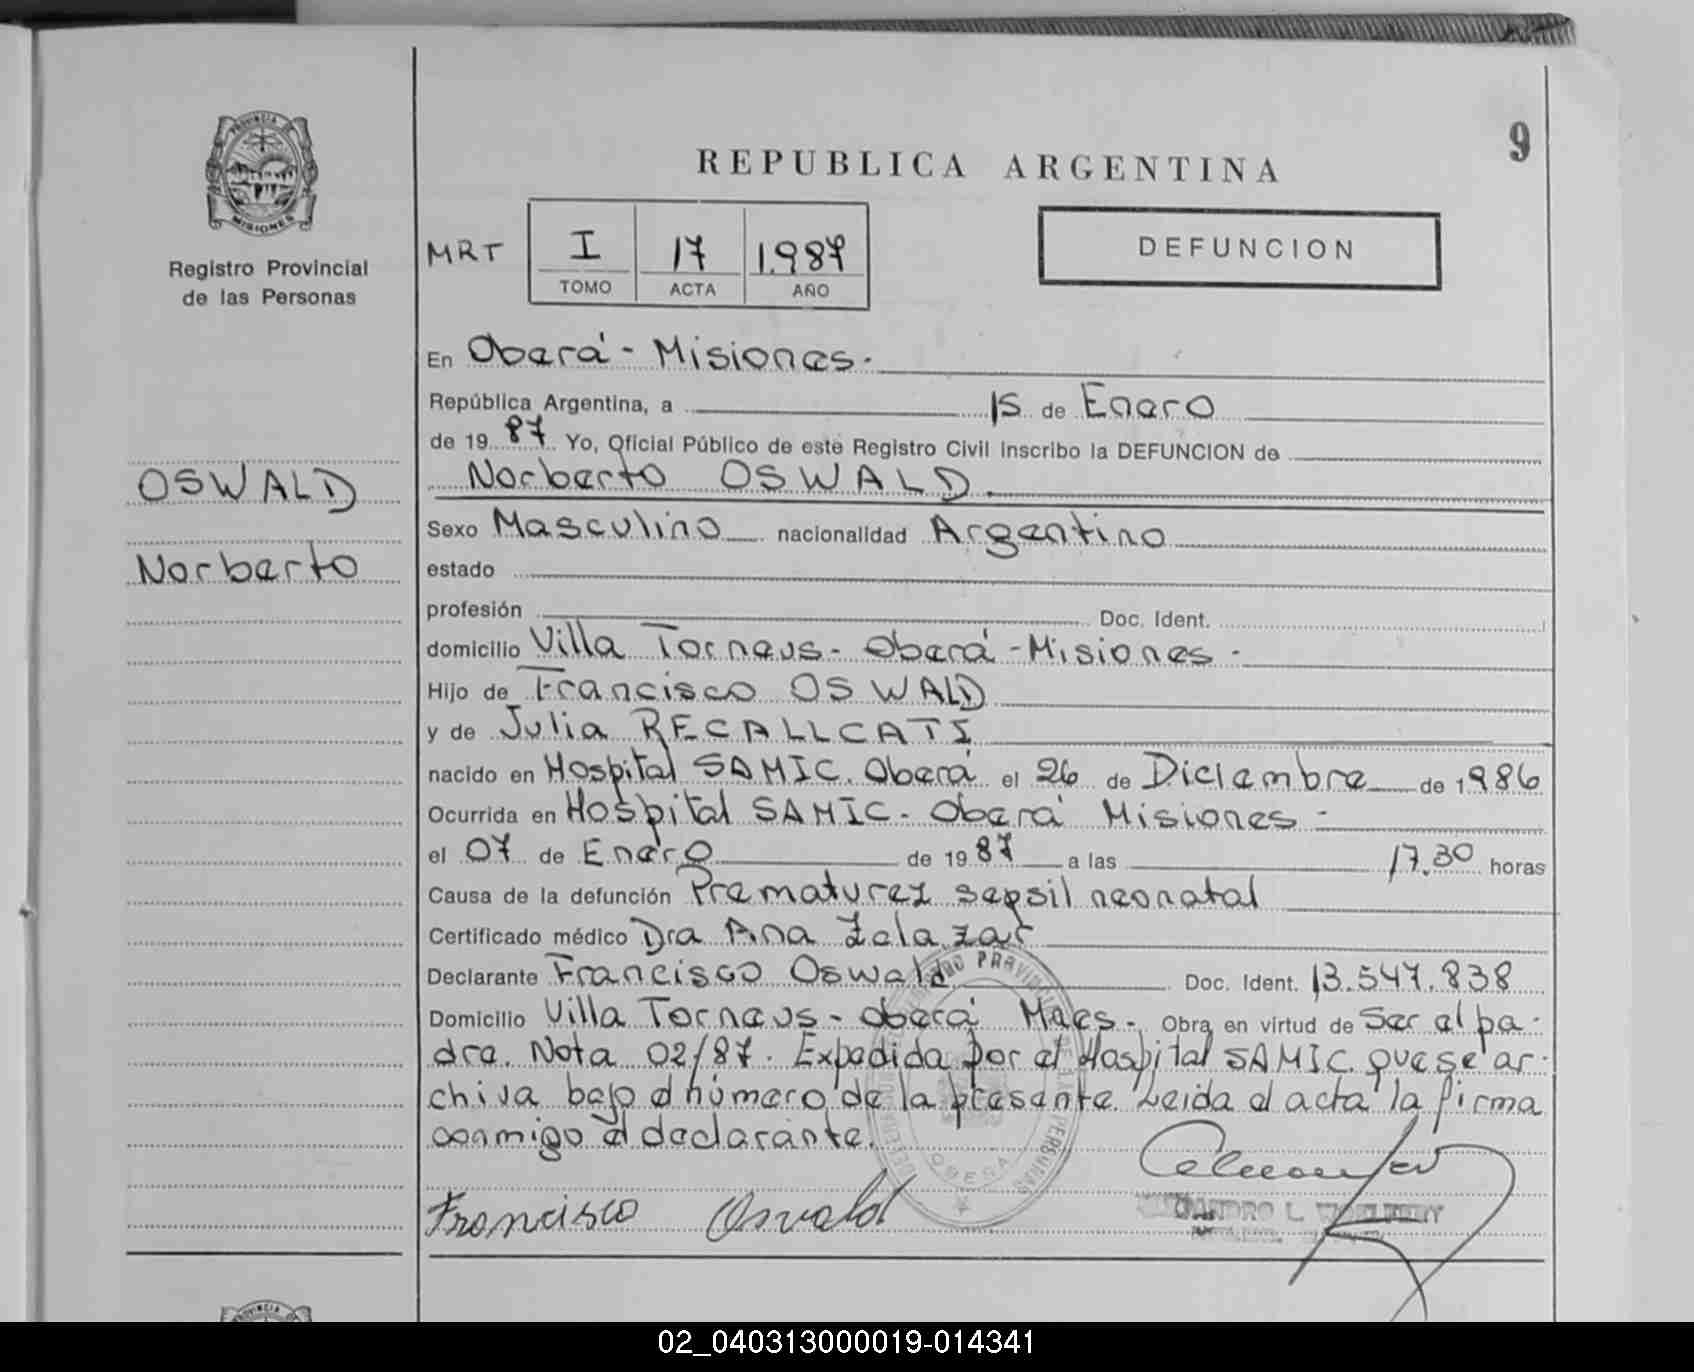 9
PROVINCIA DE
MISIONES
Registro Provincial
de las Personas
REPUBLICA ARGENTINA
MRT I 17 1.987
TOMO ACTA AÑO
DEFUNCION
OSWALD
Norberto
En Oberá - Misiones.
República Argentina, a 15 de Enero
de 19 87 Yo, Oficial Público de este Registro Civil inscribo la DEFUNCION de
Norberto OSWALD.
Sexo Masculino nacionalidad Argentino
estado
profesión Doc. Ident.
domicilio Villa Torneus - Oberá - Misiones -
Hijo de Francisco OSWALD
y de Julia RECALLCATI
nacido en Hospital SAMIC. Oberá el 26 de Diciembre de 1986
Ocurrida en Hospital SAMIC - Oberá Misiones -
el 07 de Enero de 19 87 a las 17.30 horas
Causa de la defunción Prematurez sepsil neonatal
Certificado médico Dra Ana Zelazar
Declarante Francisco Oswald Doc. Ident. 13.547.838
Domicilio Villa Torneus - Oberá Mnes - Obra en virtud de Ser el pa-
dre. Nota 02/87. Expedida por el Hospital SAMIC que se ar-
chiva bajo el número de la presente. Leida el acta la firma
conmigo el declarante.
Francisco Oswald
OBERA
02_040313000019-014341